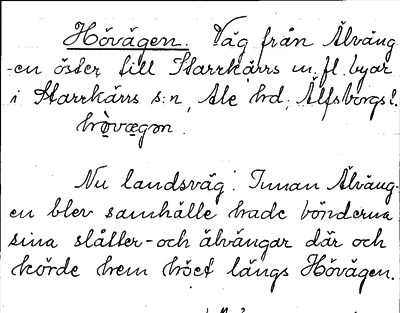 Hövägen. Väg från Älväng-
en öster till Starrkärrs m. fl. byar
i Starrkärrs s:n, Ale hd, Älfsborgs l.
hòvægən.
Nu landsväg. Innan Älväng-
en blev samhälle hade bönderna
sina slåtter- och älvängar där och
körde hem höet längs Hövägen.